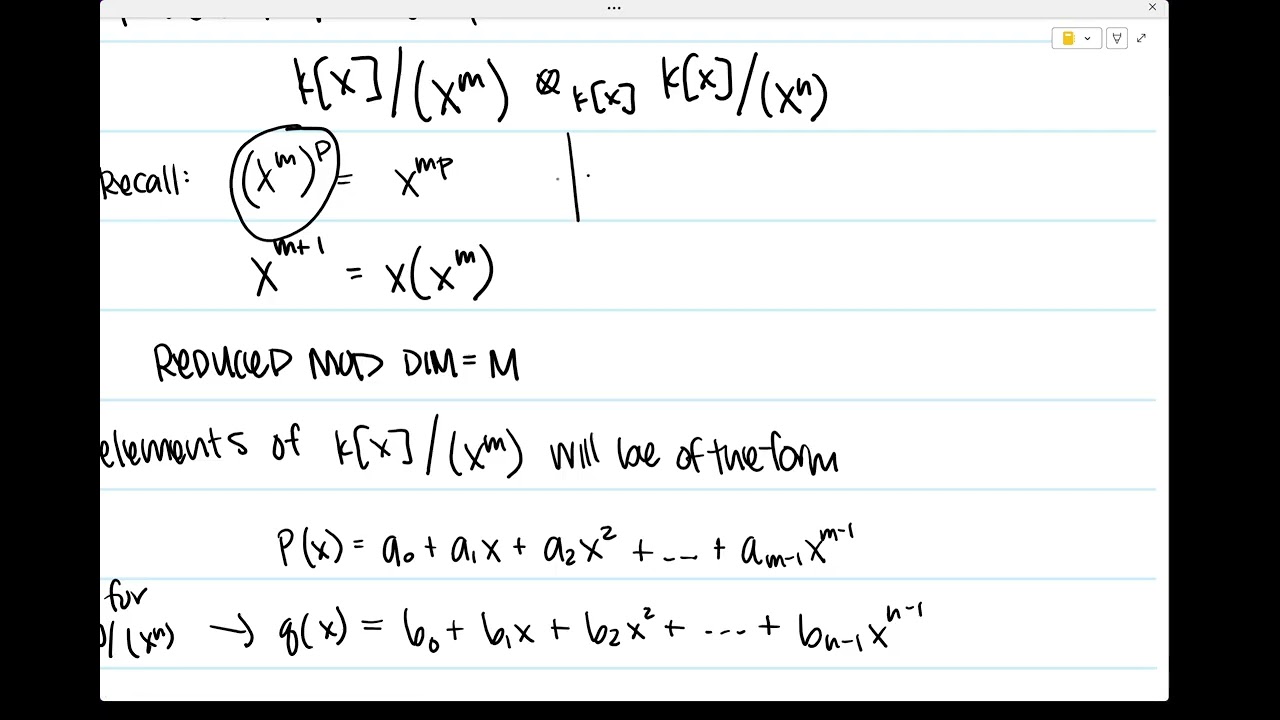 k[x]/(x^m) ⊗_{k[x]} k[x]/(x^n)
Recall: (x^m)^p = x^{mp}
x^{m+1} = x(x^m)
REDUCED MOD DIM = M
elements of k[x]/(x^m) will be of the form
P(x) = a_0 + a_1x + a_2x^2 + ... + a_{m-1}x^{m-1}
for
/(x^n) → q(x) = b_0 + b_1x + b_2x^2 + .... + b_{n-1}x^{n-1}